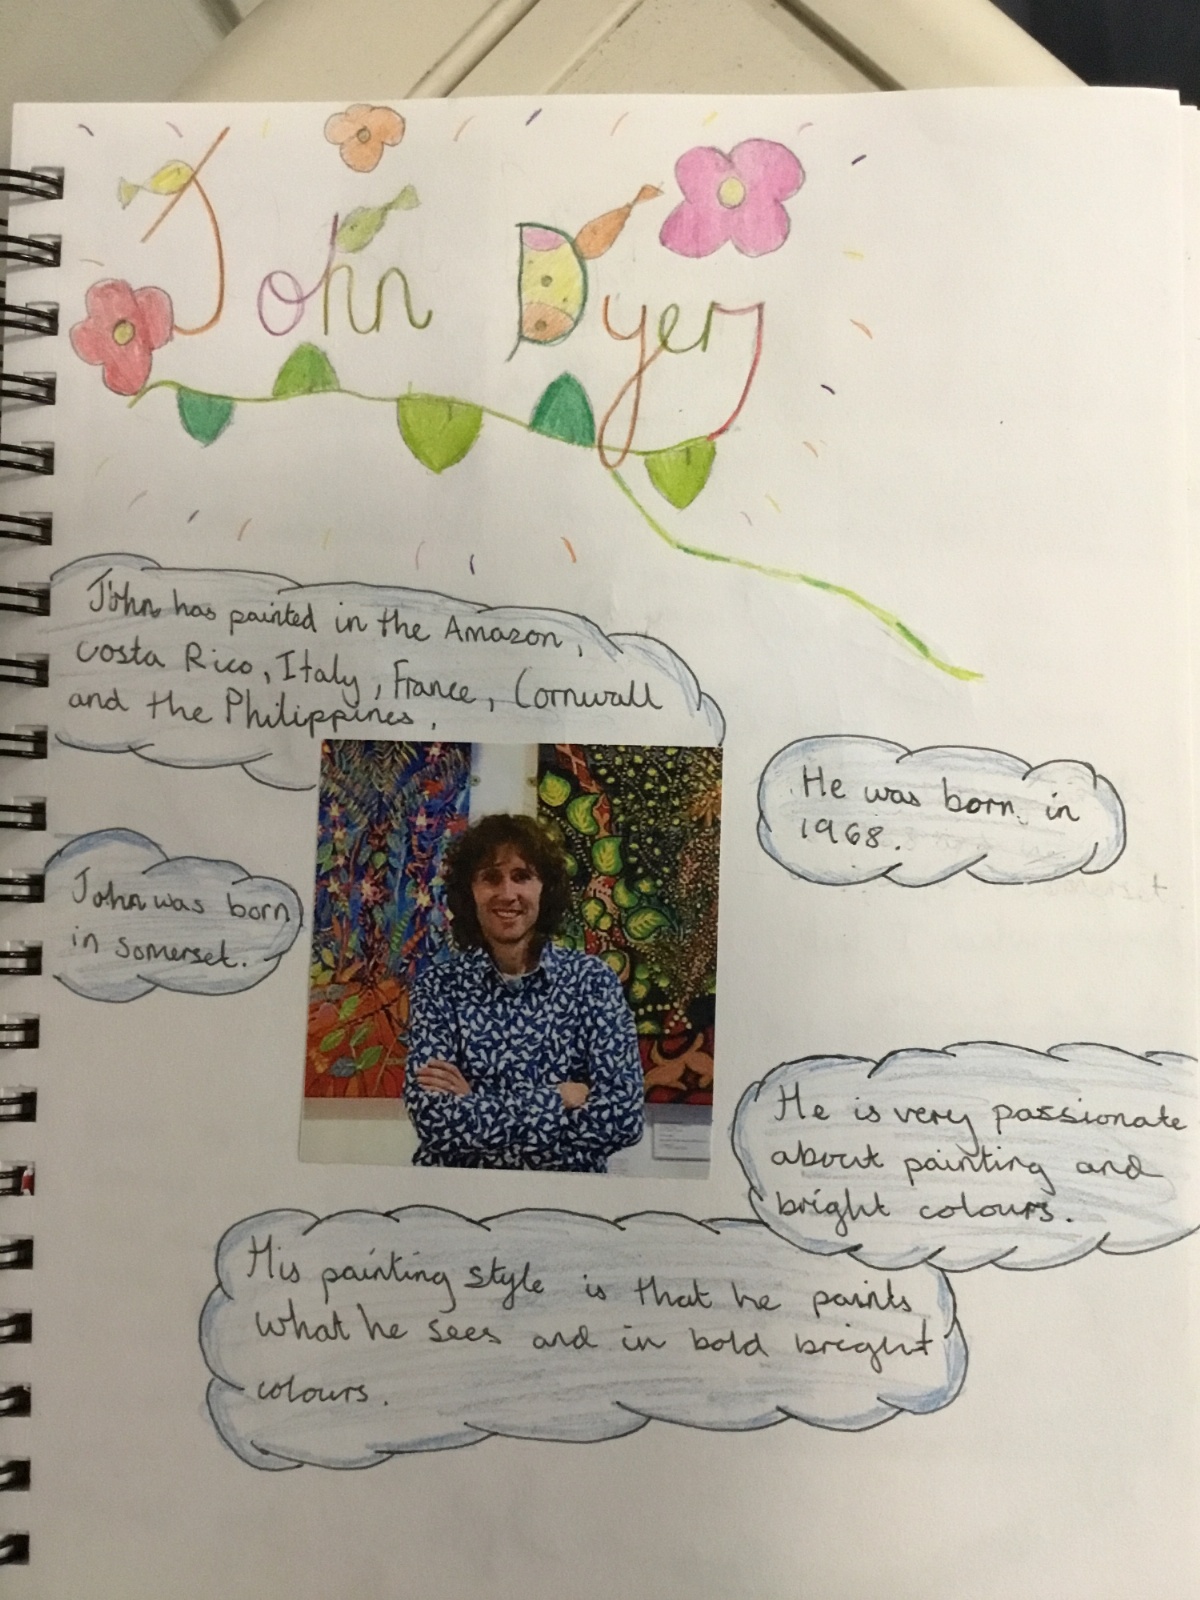 John Dyer
John has painted in the Amazon,
Costa Rico, Italy, France, Cornwall
and the Philippines.
He was born in
1968.
John was born
in somerset.
He is very passionate
about painting and
bright colours.
His painting style is that he paints
what he sees and in bold bright
colours.